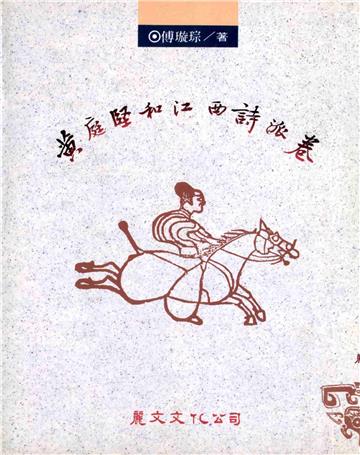 傅璇琮／著
黃庭堅和江西詩派卷
麗文文化公司